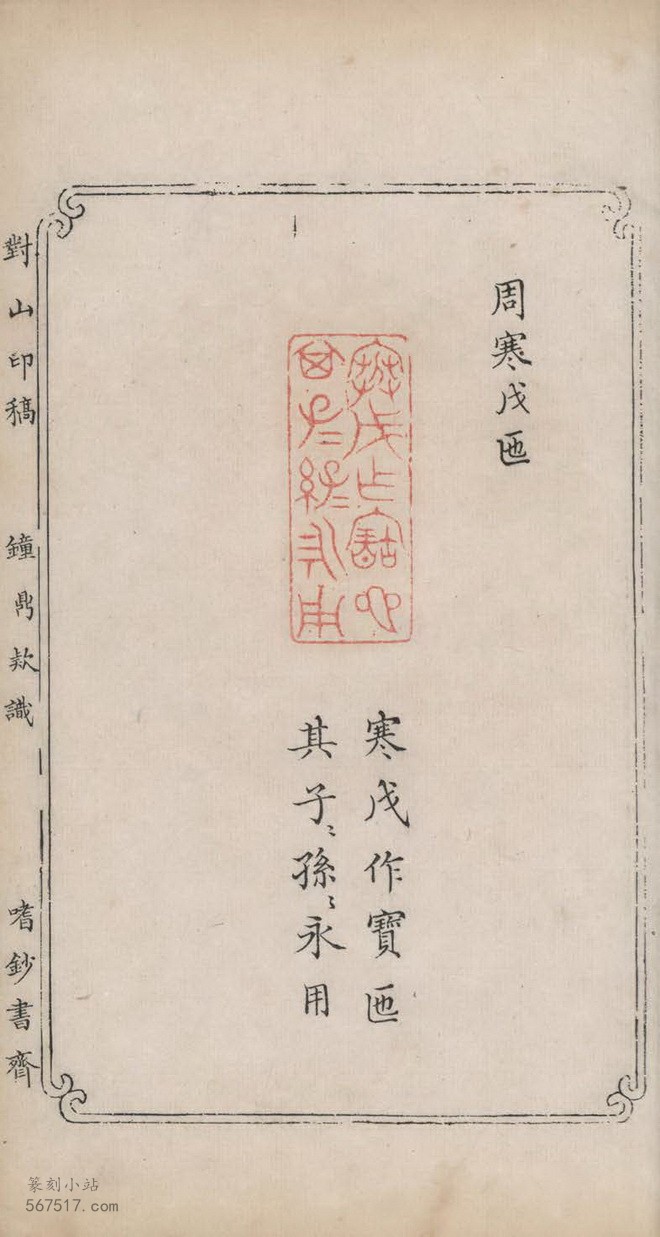 周寒戊匜
寒戊作寶匜
其子〻孫〻永用
對山印稿 鐘鼎款識 嗜鈔書齋
篆刻小站
567517.com